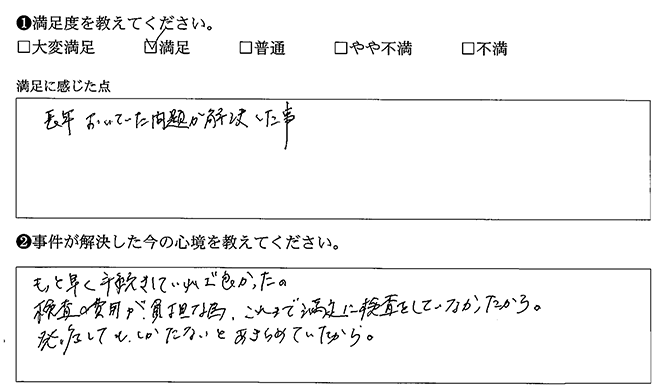 ❶満足度を教えてください。
□大変満足 ☑満足 □普通 □やや不満 □不満
満足に感じた点
長年 おいていた問題が解決した事
❷事件が解決した今の心境を教えてください。
もっと早く手続きしていれば良かったの
検査の費用が負担な為、これまで満足に検査をしていなかったから。
発症してもしかたないとあきらめていたから。